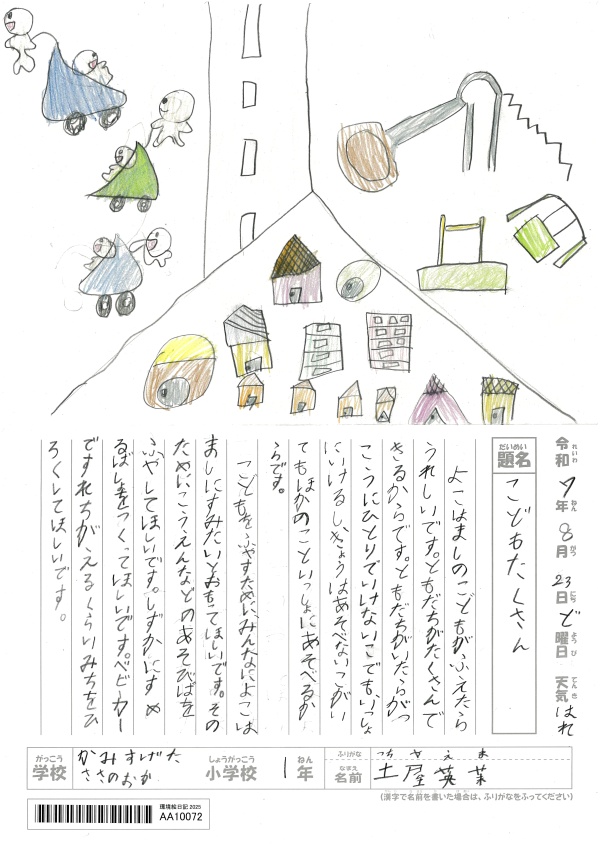 令和7年8月23日ど曜日 天気はれ
れいわ ねん がつ にち ようび てんき
だいめい
題名
こどもたくさん
よこはましのこどもがふえたら
うれしいです。ともだちがたくさんで
きるからです。ともだちがいたらがっ
こうにひとりでいけないこでも、いっしょ
にいけるし、きょうはあそべないこがい
てもほかのこといっしょにあそべるか
らです。
こどもをふやすために、みんなによこは
ましにすみたいとおもってほしいです。その
ためにこうえんなどのあそびばを
ふやしてほしいです。しずかにすめ
るばしょをつくってほしいです。ベビーカー
ですれちがえるくらいみちをひ
ろくしてほしいです。
がっこう
学校
かみすげた
ささのおか
しょうがっこう
小学校
1年
ねん
ふりがな
つちやえま
なまえ
名前
土屋英茉
(漢字で名前を書いた場合は、ふりがなをふってください)
環境絵日記 2025
AA10072